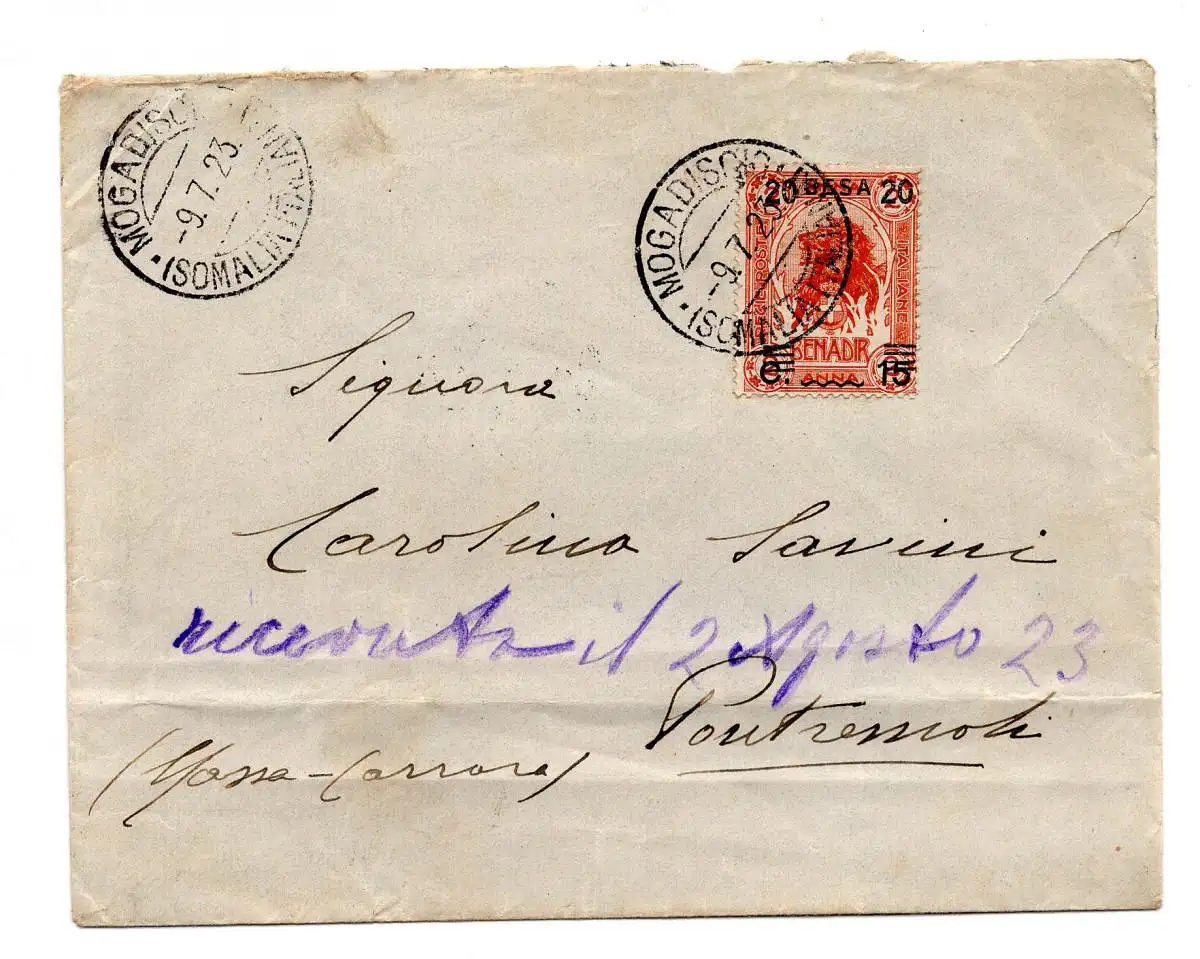 MOGADISCIO
-9.7.23
(SOMALIA ITALIANA)
MOGADISCIO
-9.7.23
(SOMALIA
20 BESA 20
POSTE
ITALIANE
BENADIR
C. 15
ANNA
Signora
Carolina Savini
ricevuta il 2 Agosto 23
Pontremoli
(Massa-Carrara)